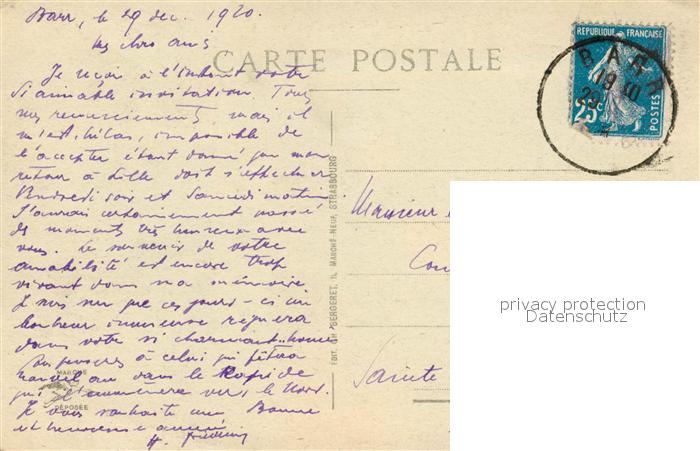 Barr, le 29 déc. 1920.
Mes chers amis
CARTE POSTALE
Je reçois à l'instant votre
si aimable invitation. Tous
mes remerciements, mais il
m'est, hélas, impossible de
l'accepter étant donné que mon
retour à Lille doit s'effectuer
Vendredi soir et Samedi matin.
J'aurais certainement passé
des moments très heureux avec
vous. Le souvenir de votre
amabilité est encore trop
vivant dans ma mémoire.
Je suis sûr que ces jours-ci un
bonheur immense régnera
dans votre si charmant home
à celui qui fêtera
nouvel an dans le Rapide
qui l'emmènera vers le Nord.
Je vous souhaite une Bonne
et heureuse année
H.
MARQUE
DÉPOSÉE
EDIT. CH. BERGERET, 11, MARCHÉ-NEUF, STRASBOURG
RÉPUBLIQUE FRANÇAISE
25c
POSTES
BARR
Monsieur
Sainte
privacy protection
Datenschutz